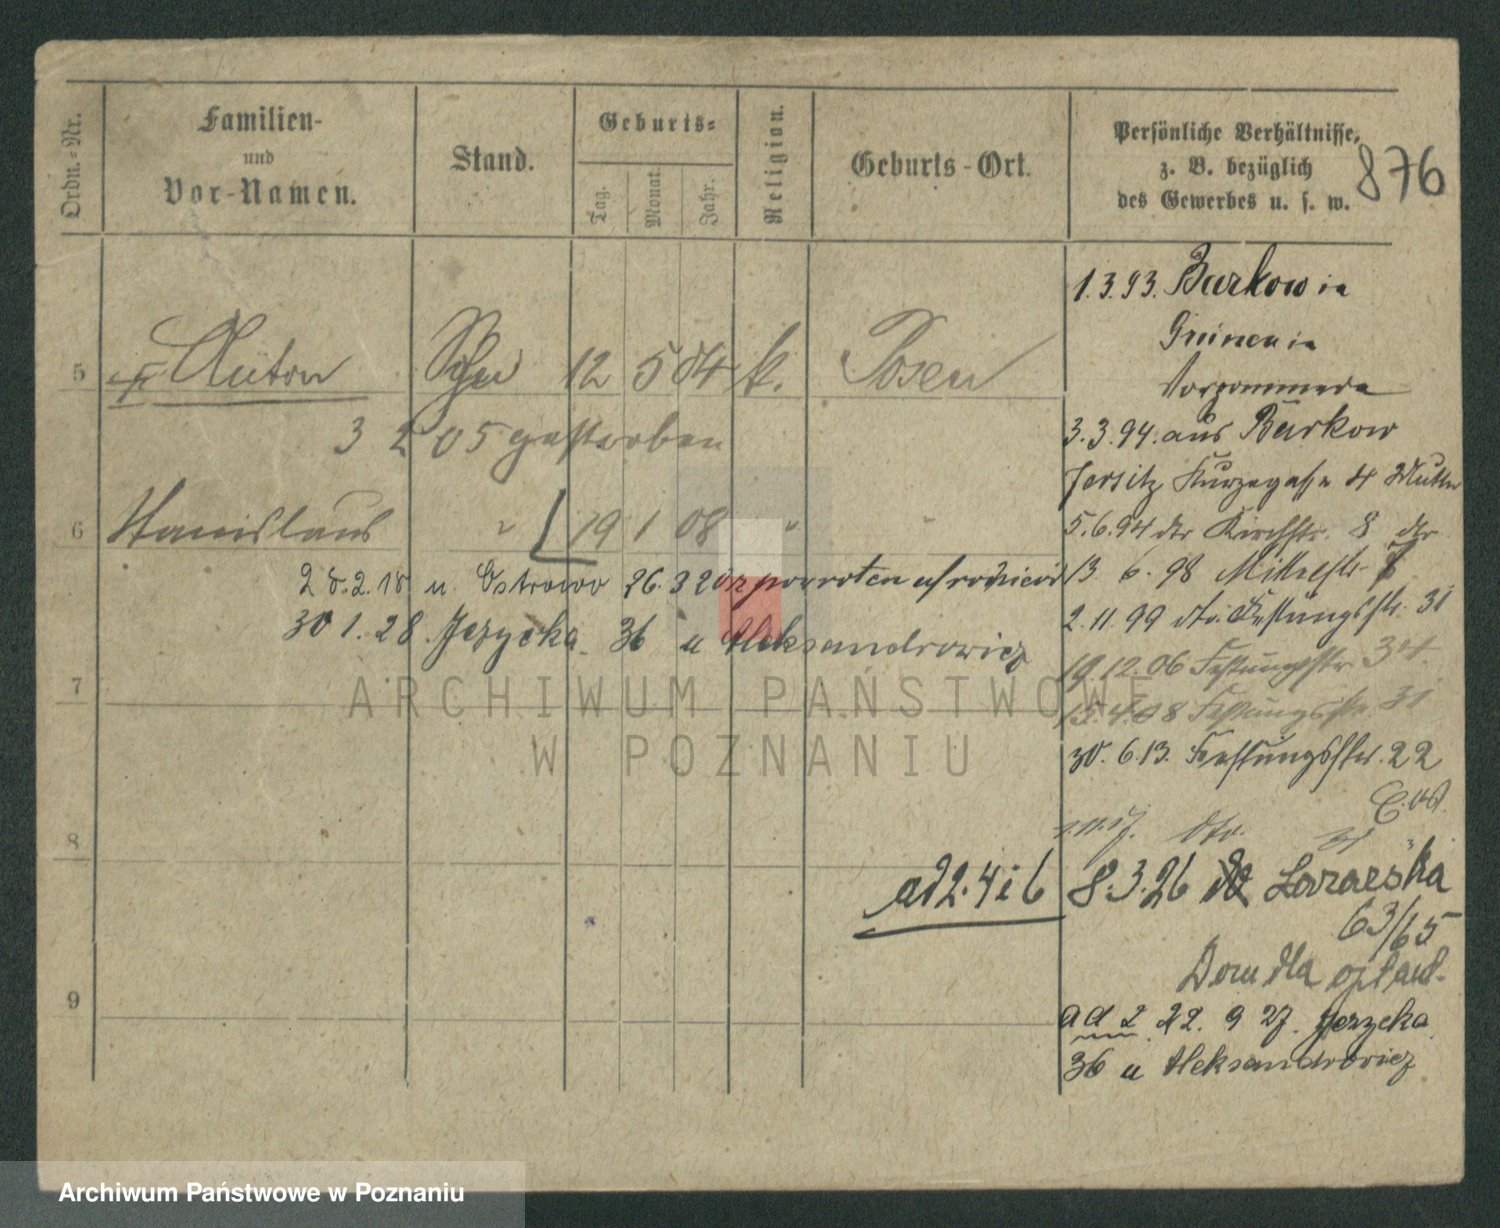 Ordn.-Nr.
Familien-
und
Vor-Namen.
Stand.
Geburts-
Tag.
Monat.
Jahr.
Religion.
Geburts-Ort.
Persönliche Verhältnisse,
z. B. bezüglich
des Gewerbes u. s. w.
876
5 Anton 12 5 04 k. Posen
3 2 05 gestorben
6 Stanislaus " 19 1 08 " "
28.2.18 u. Ostrowo 26.3 20 z powrotem u rodziców
30 1.28. Jezycka 36 u Aleksandrowicz
7
8
9
1.3.93. Barkow in
Grimen in
Vorpommern
3.3.94. aus Barkow
Jersitz Kurzegasse 4 Mutter
5.6.94 dto Kirchstr. 8 dto
13 6.98 Mittelstr. 7
2.11.99 dto. Festungsstr. 31
19.12.06 Festungsstr. 34.
15.4.08 Festungsstr. 31
30.6.13. Festungsstr. 22
dto.
ad 2. 4 i 6 8.3.26 Lazarska
63/65
Dom dla optant.
ad 2 22. 9 27. Jezycka
36 u Aleksandrowicz
ARCHIWUM PAŃSTWOWE
W POZNANIU
Archiwum Państwowe w Poznaniu